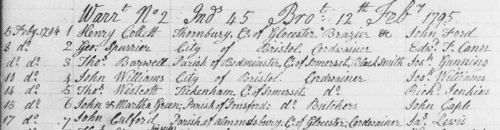 Warrt. No 2 Ind 45 Bro. 12th Feby 1795
5 Feby. 1794 1 Henry Collett Thornbury, Co. of Glocester Brazier &c John Ford
8 do. 2 Geo: Spurrier City of Bristol Cordwainer Edwd. J. Cann
do do. 3 Thos. Barwell Parish of Bedminster, C. of Somerset, Black Smith Jos: Gunning
10 do. 4 John Williams City of Bristol Cordwainer Jos: Williams
14 do 5 Thos. Westcott Tickenham, C. of Somerset do Richd. Jenkins
15 do 6 John & Martha Green, Parish of Do. Butchers John Caple
17 do. 7 John Parish of Almondsbury, C. of Glocester: Cordwainer Jas. Lewis